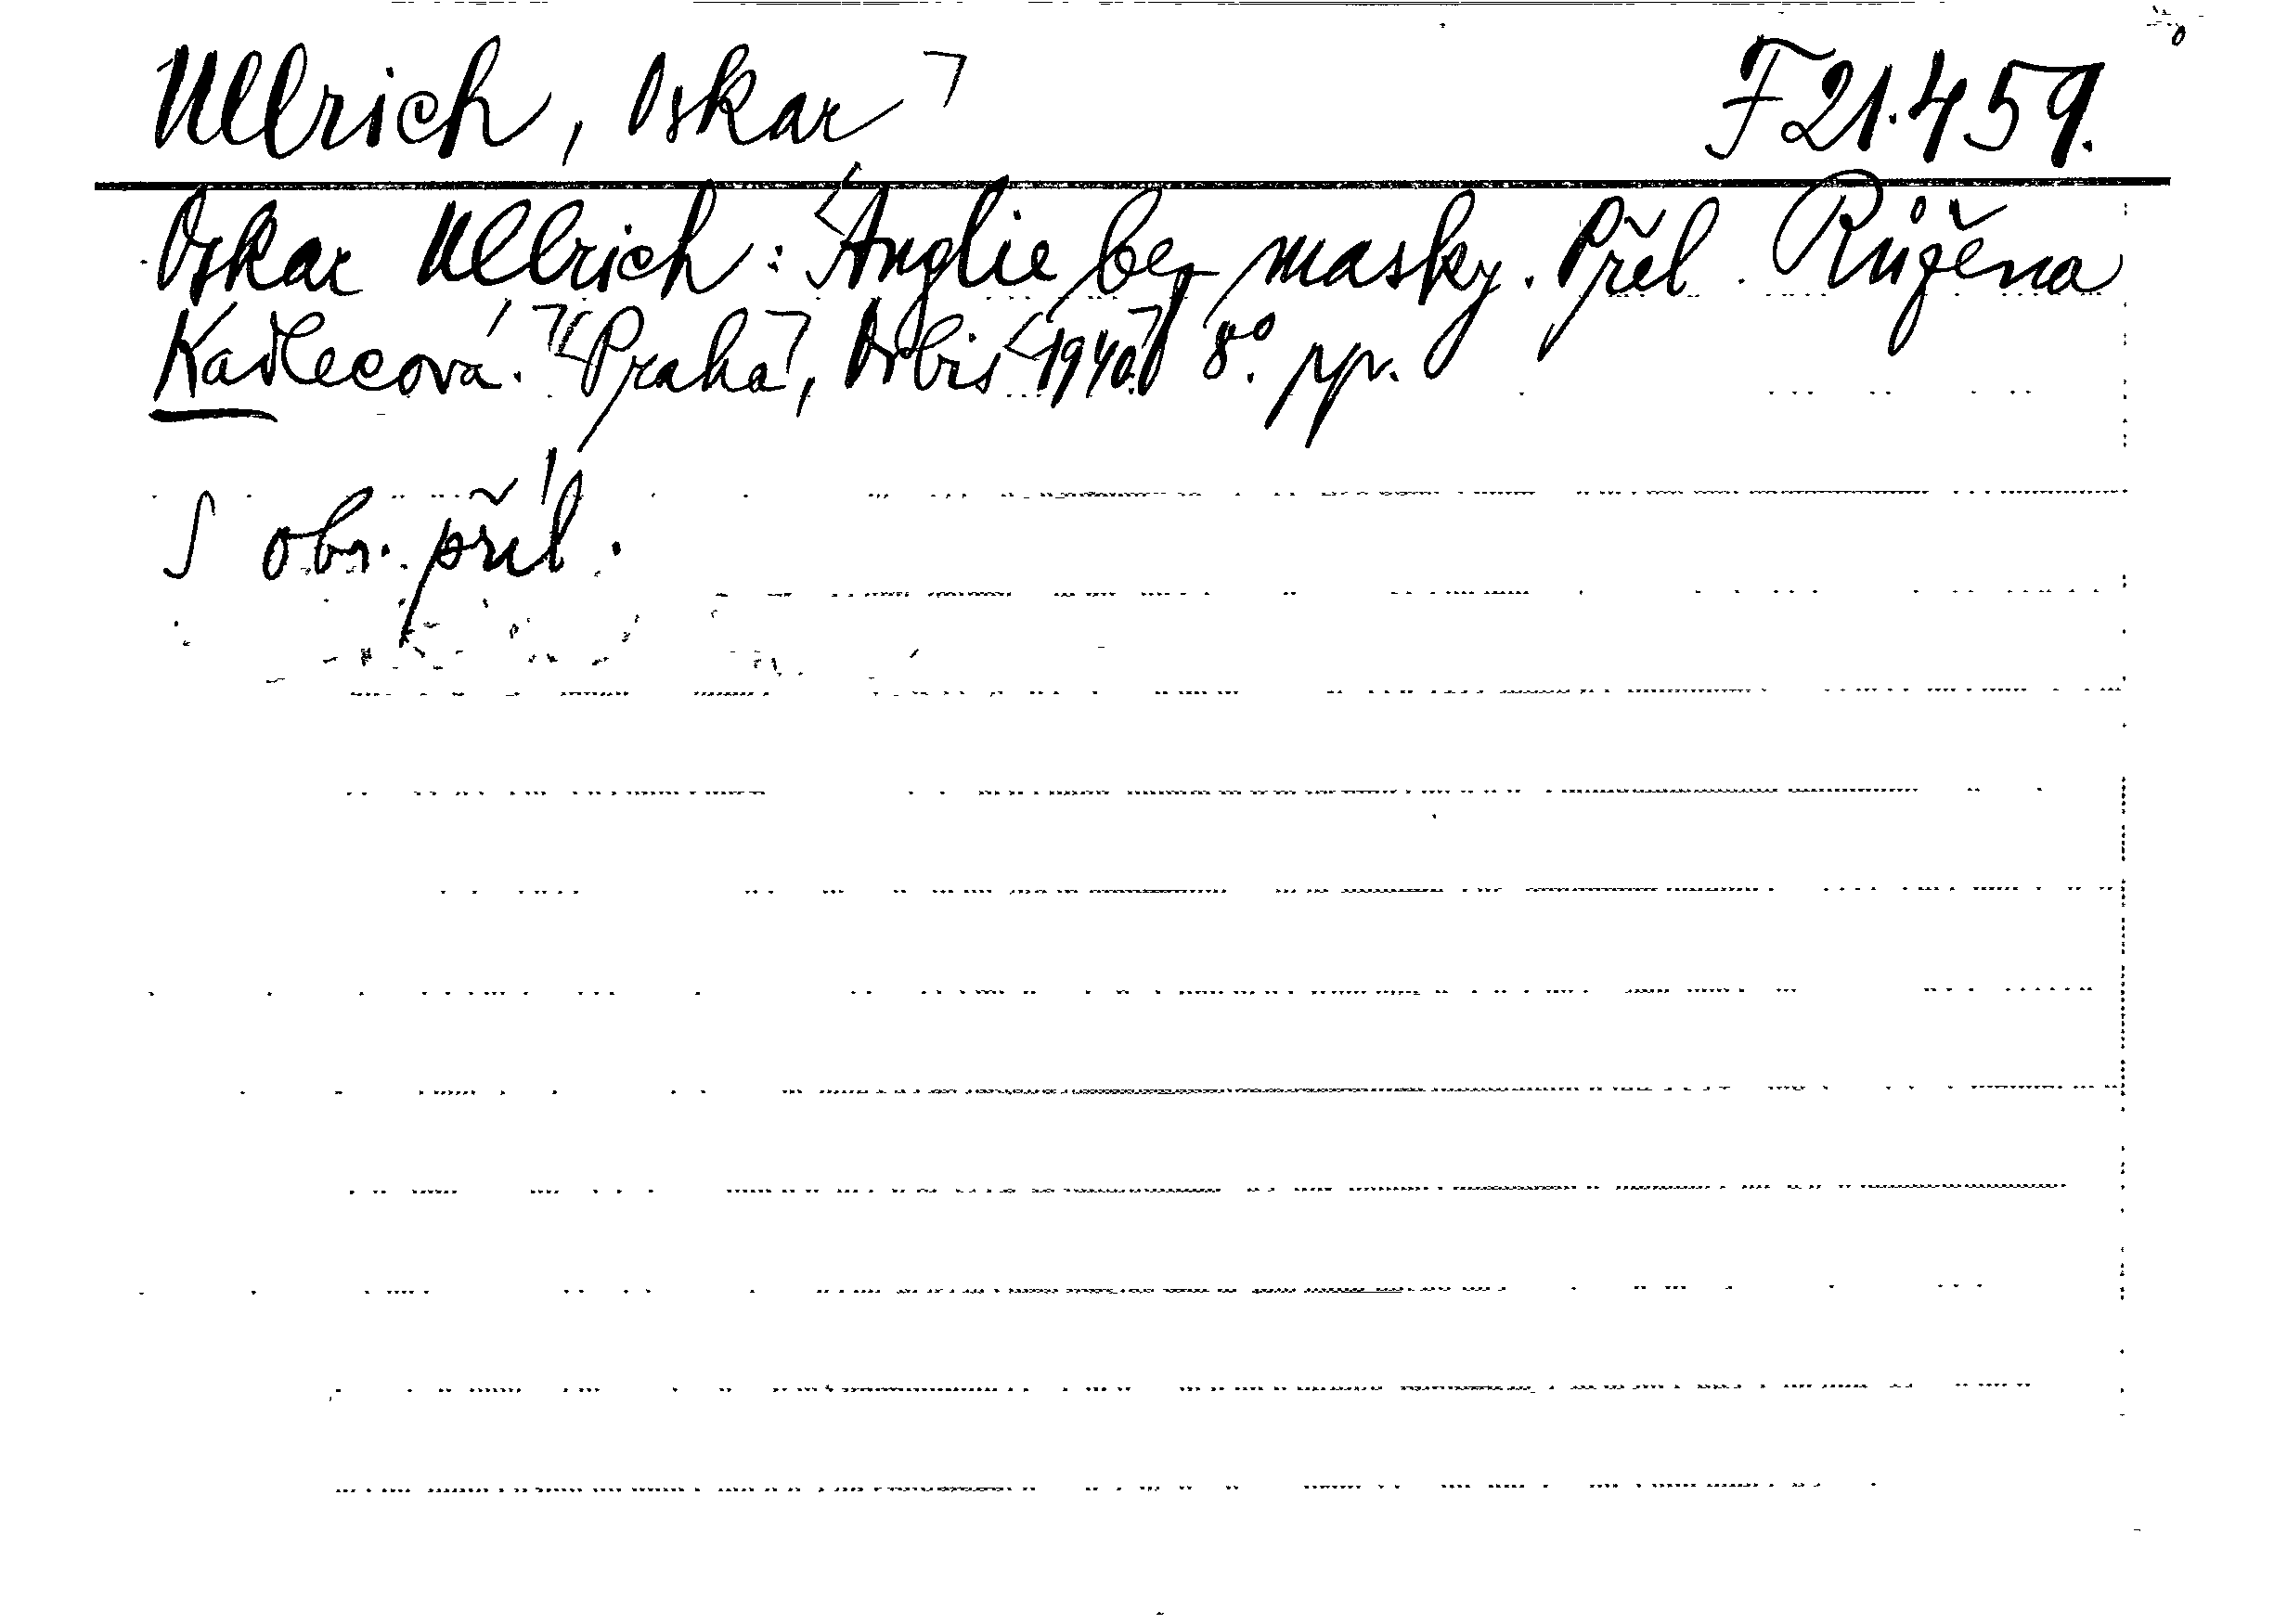 Ullrich, Oskar ┐ F 21.459.
Oskar Ullrich: <Anglie bez masky. Přel. Růžena
Kadlecová.┐ <Praha┐, Orbis <1940.┐ 8°. pp.
S obr. příl.